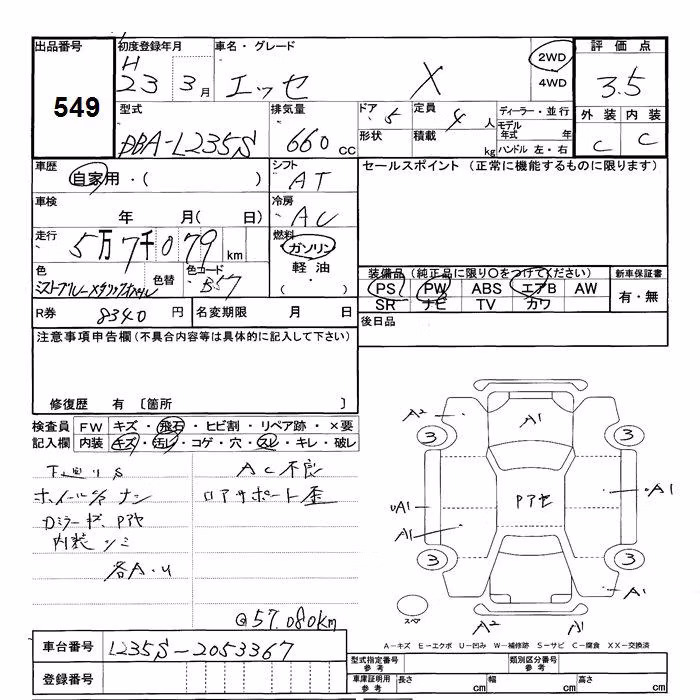 出品番号 初度登録年月 車名・グレード 評価点
549
H 23 3月 エッセ X 2WD 4WD 3.5
型式 排気量 ドア 5 定員 4人 ディーラー・並行 外装 内装
DBA-L235S 660cc 形状 積載 kg モデル年式 年 C C
ハンドル 左・右
車歴 自家用・( ) シフト AT セールスポイント (正常に機能するものに限ります)
車検 年 月( 日) 冷房 AC
走行 5万7千079km 燃料 ガソリン 軽油 ( ・ )
色 色替 色コード B57
装備品 (純正品に限り○をつけてください) 新車保証書
PS PW ABS エアB AW 有・無
SR ナビ TV カワ
R券 8340円 名変期限 月 日 後日品
注意事項申告欄(不具合内容等は具体的に記入して下さい)
修復歴 有 〔箇所 〕
検査員記入欄 FW キズ・飛石・ヒビ割・リペア跡・×要
内装 キズ・汚レ・コゲ・穴・スレ・キレ・破レ
下廻りS AC不良
ロアサポート歪
Pアセ
内装
各A・U
@57.080km
A2 A1
3 3
A1 Pアセ A1
A1
3 3
A1
A2 A1
スペア
A-キズ E-エクボ U-凹み W-補修跡 S-サビ C-腐食 XX-交換済
車台番号 L235S-2053367
登録番号
型式指定番号 参考 類別区分番号 参考
車庫証明用 参考 長さ cm 幅 cm 高さ cm